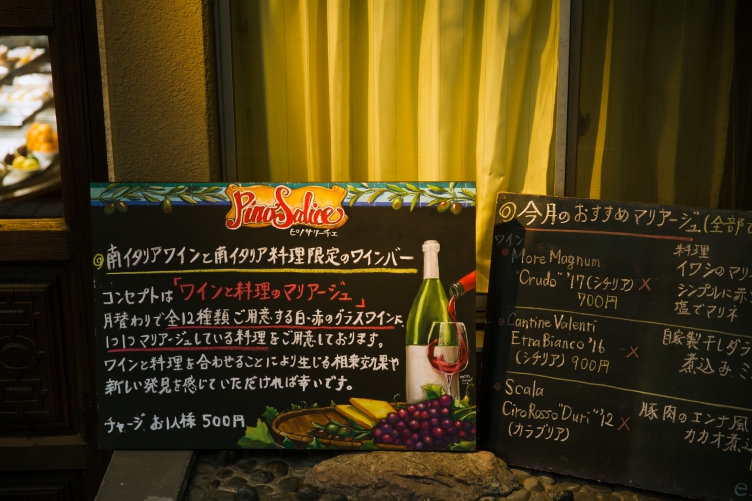 Pino Salice
ピノサリーチェ
南イタリアワインと南イタリア料理限定のワインバー
コンセプトは「ワインと料理のマリアージュ」
月替わりで全12種類、ご用意する白・赤のグラスワインに、
1つ1つマリアージュしている料理をご用意しております。
ワインと料理を合わせることにより生じる相乗効果や
新しい発見を感じていただければ幸いです。
チャージ、お1人様 500円
◎今月のおすすめマリアージュ(全部で
ワイン
料理
More Magnum
"Crudo" '17(シチリア) ×
700円
イワシのマリ
シンプルに赤
塩でマネ
Cantine Valenti
Etna Bianco '16 ×
(シチリア) 900円
自家製干しダラ
煮込み ミ
Scala
Ciro Rosso "Duri" '12 ×
(カラブリア)
豚肉のエンナ風
カカオ煮込